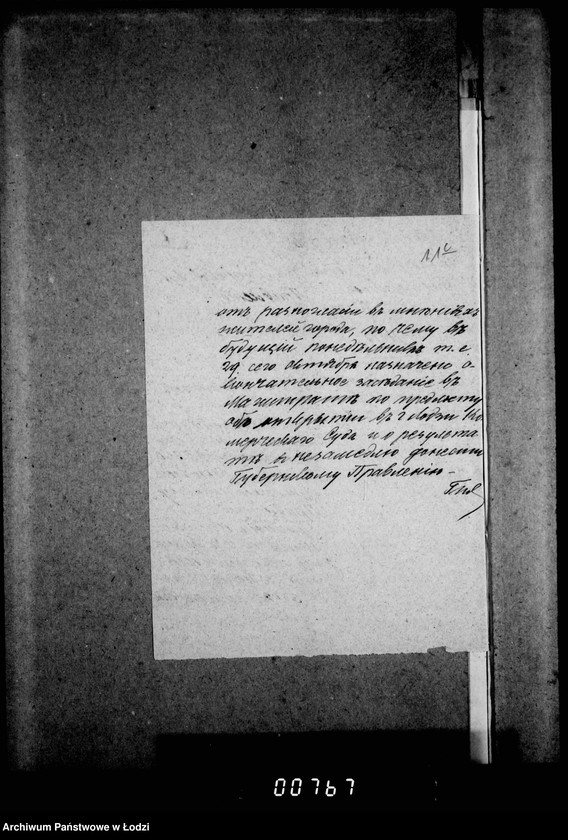 11
отъ разногласiй въ мнѣнiяхъ
жителей города, по чему въ
будущiй понедѣльникъ т. е.
29 сего Октября назначено о
кончательное засѣданiе въ
Магистратѣ по проэкту
объ открытiи въ г. Лодзи Ко
мерческаго Суда и о результа
тѣ я незамедлю донести
Губернскому Правленiю.
00767
Archiwum Państwowe w Łodzi